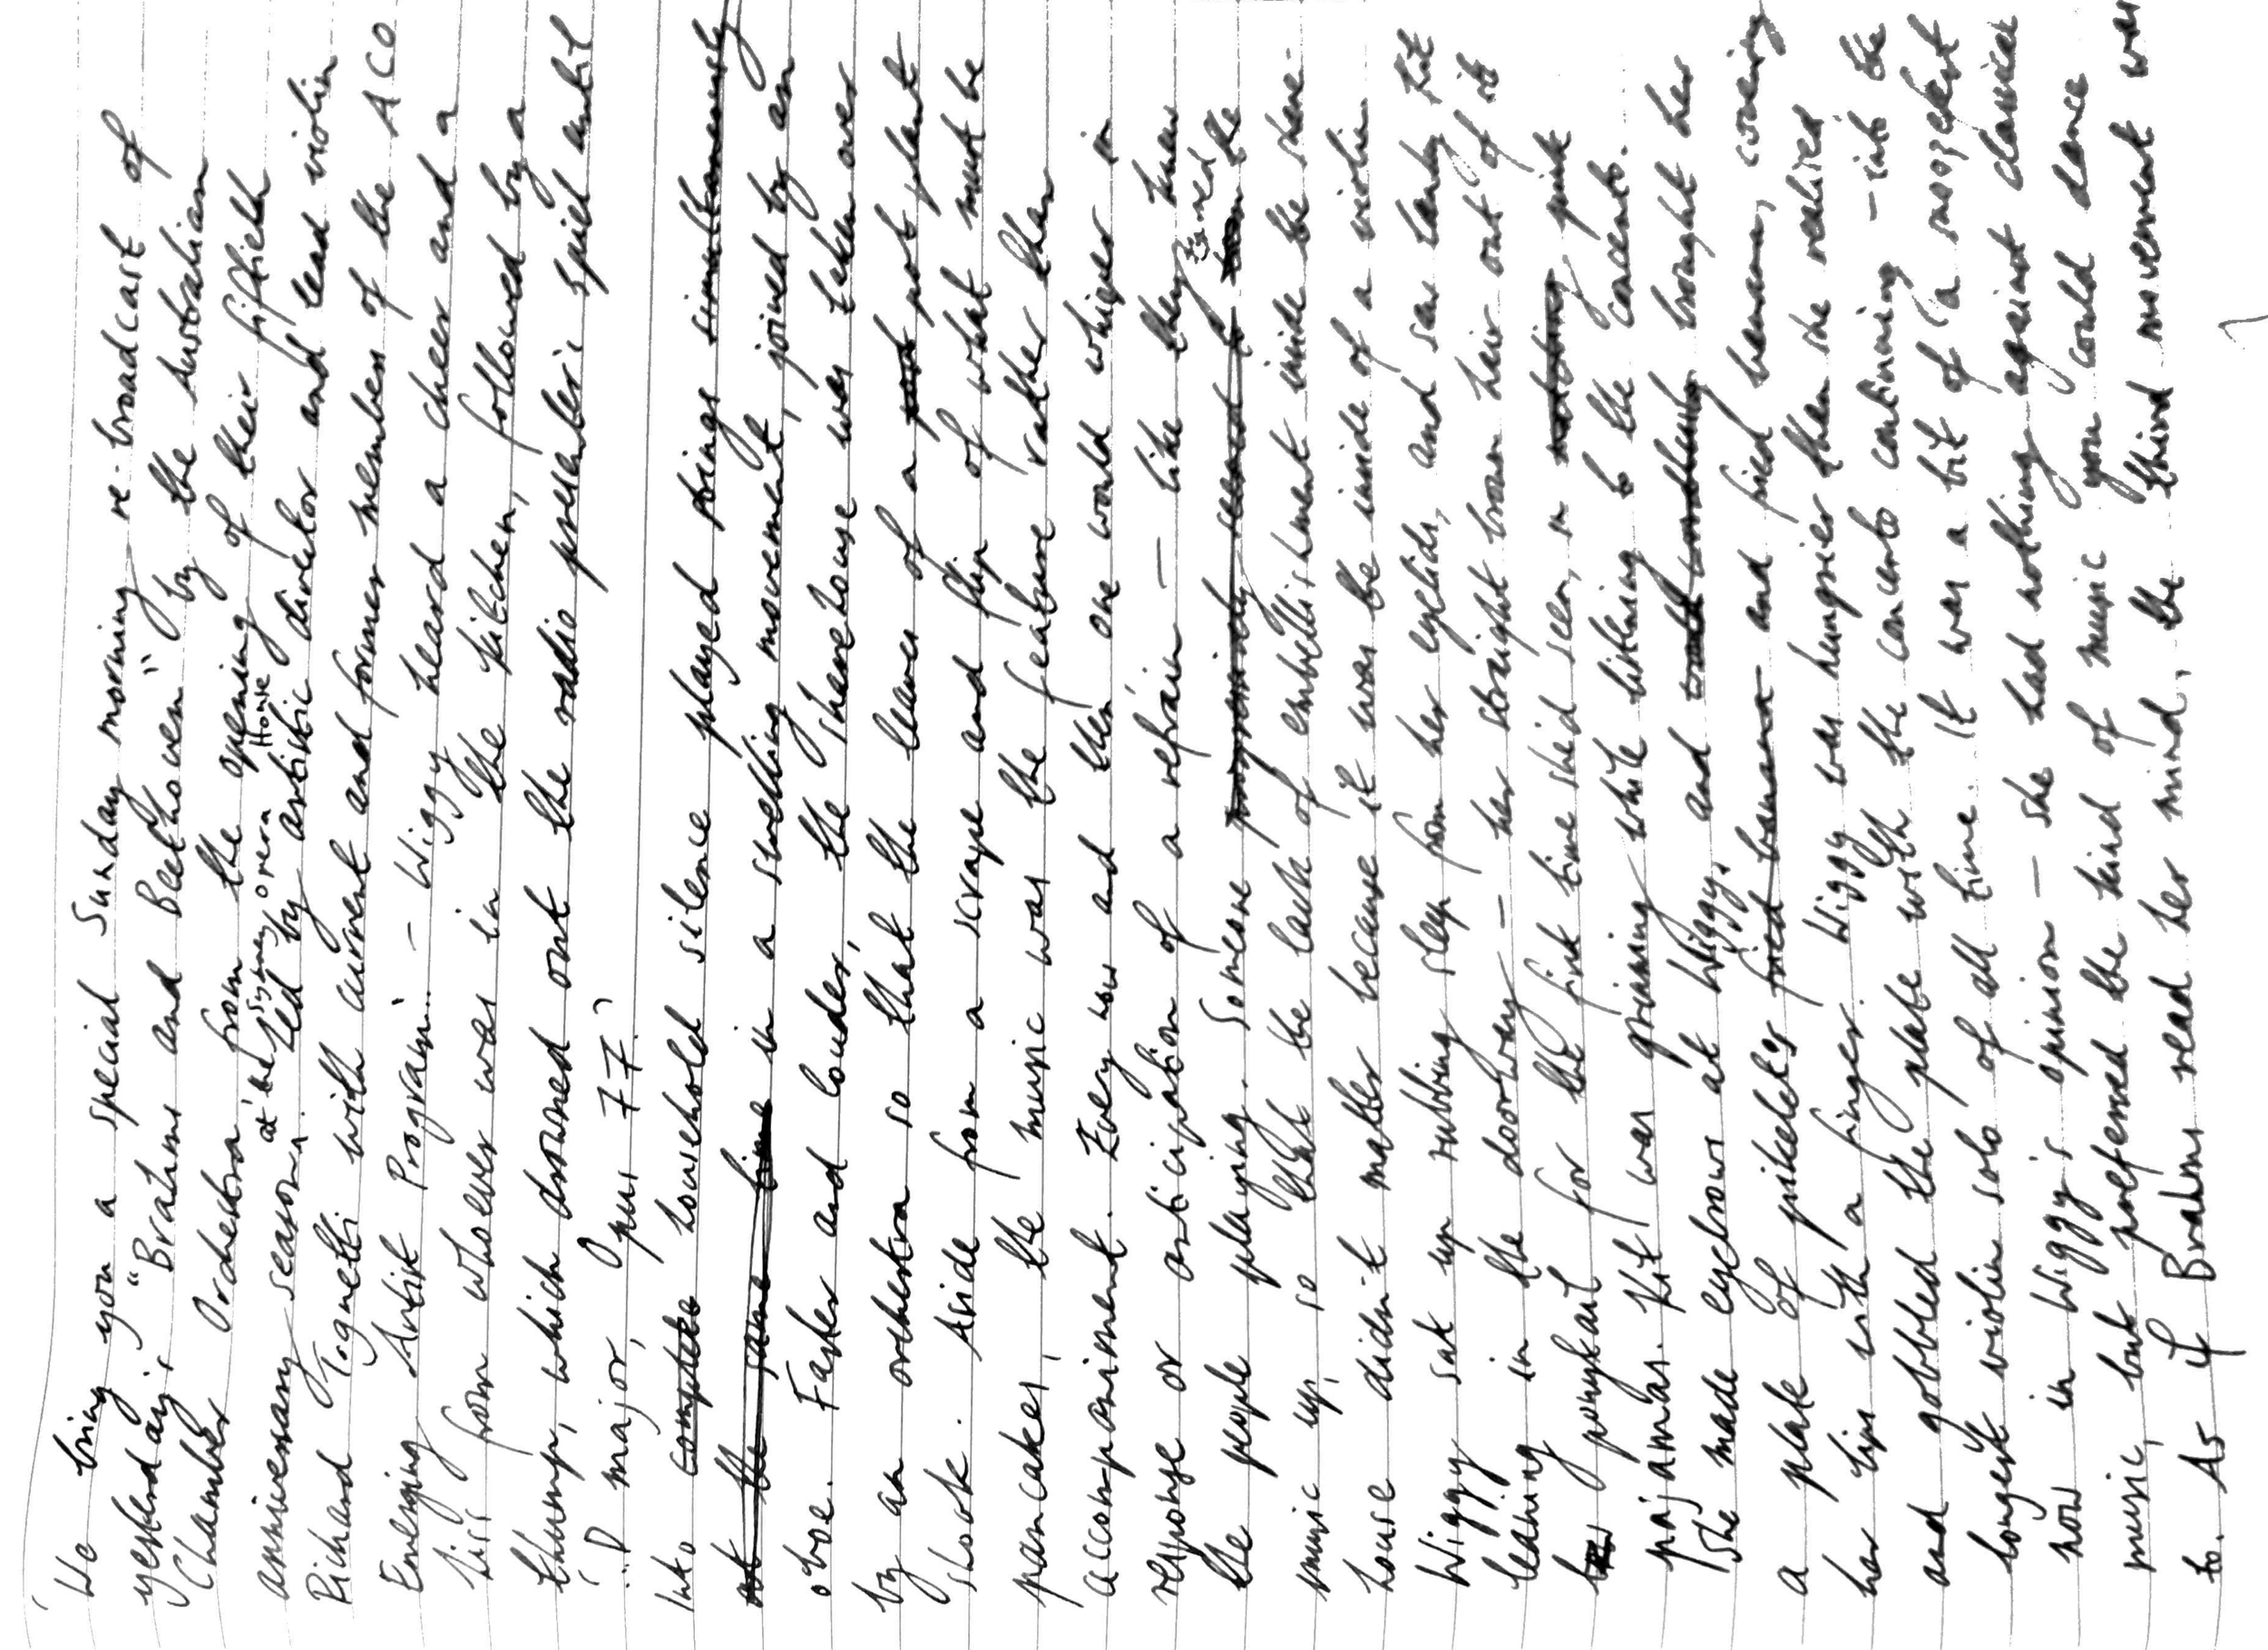 'We bring you a special Sunday morning re-broadcast of
yesterday's "Brahms and Beethoven" by the Australian
Chamber Orchestra from the opening of their fiftieth
at the Sydney Opera House
anniversary season. Led by artistic director and lead violin
Richard Tognetti with current and former members of the ACO
Emerging Artist Program...' – Wiggy heard a cheer and a
hiss from whoever was in the kitchen, followed by a
thump, which drowned out the radio presenter's spiel until
'...D major, Opus 77.'
Into complete household silence played strings simultaneously
at the same time in a swelling movement, joined by an
oboe. Faster and louder, the sharehouse was taken over
by an orchestra so that the leaves of a pot plant
shook. Aside from a scrape and flip of what must be
pancakes, the music was the feature rather than
accompaniment. Every now and then one would whisper in
response or anticipation of a refrain – like they knew
the people playing. Someone turned the
music up, so that the lack of embellishment inside the share-
house didn't matter because it was the inside of a violin.
Wiggy sat up rubbing sleep from her eyelids, and saw lanky Kit
leaning in the doorway – her straight brown hair out of its
ponytail for the first time she'd seen, in pink
pajamas. Kit was grinning while listening to the concerto.
She made eyebrows at Wiggy, and brought her
a plate of pikelets fried banana and fried banana, covering
her lips with a finger. Wiggy was hungrier than she realised
and gobbled the plate with the concerto continuing – into the
longest violin solo of all time. It was a bit of a snoozefest
now in Wiggy's opinion – she had nothing against classical
music, but preferred the kind of music you could dance
to. As if Brahms read her mind, the third movement was